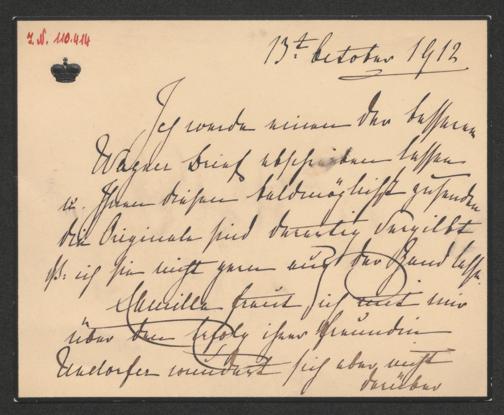 I.N. 110.414
13t October 1912
Ich werde einen der besseren
Wagner Brief abschreiben lassen
u. Ihnen diesen baldmöglichst zusenden
die Originale sind derartig vergilbt
ds: ich sie nicht gern aus der Hand lasse.
Camilla freut sich mit mir
über den Erfolg ihrer Freundin
wundert sich aber nicht
darüber